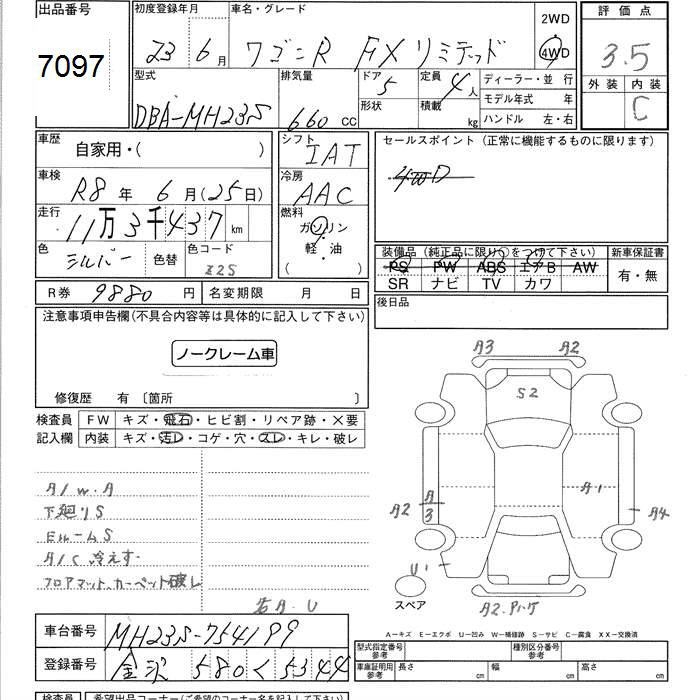 出品番号 初度登録年月 車名・グレード 2WD 評価点
7097 23年6月 ワゴンR FXリミテッド 4WD 3.5
型式 排気量 ドア 5 定員 4人 ディーラー・並 行 外装 内装
DBA-MH23S 660cc 形状 積載 kg モデル年式 年 C
ハンドル 左・右
車歴 自家用・( ) シフト IAT セールスポイント (正常に機能するものに限ります)
車検 R8年 6月(25日) 冷房 AAC 4WD
走行 11万3千437km 燃料 ガソリン
軽・油
( )
色 シルバー 色替 色コード Z2S 装備品 (純正品に限り○をつけて下さい) 新車保証書
PS PW ABS エアB AW 有・無
SR ナビ TV カワ
R券 9880円 名変期限 月 日 後日品
注意事項申告欄(不具合内容等は具体的に記入して下さい)
ノークレーム車
修復歴 有 〔箇所 〕
検査員 FW キズ・飛石・ヒビ割・リペア跡・X要
記入欄 内装 キズ・汚レ・コゲ・穴・スレ・キレ・破レ
A3 A2
S2
A2 A3 A1 A4
U1
スペア
A2.Pハゲ
A/W.A
下廻りS
EルームS
A/C 冷えず
フロアマット、カーペット破レ
右A.U
A−キズ E−エクボ U−凹み W−補修跡 S−サビ C−腐食 XX−交換済
車台番号 MH23S-754199
登録番号 金沢 580 く 5344
型式指定番号 参考 種別区分番号 参考
車庫証明用 参考 長さ cm 幅 cm 高さ cm
検査員 希望出品コーナー(ご希望のコーナー名を記入して下さい)